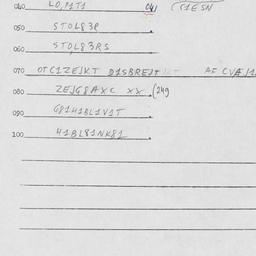 040 LO,P1T1 041 (C1ESN
050 STOL83P.
060 STOL83RS
070 OTC1ZEJKT D1SBREJT AF CVÆJ1
080 ZEJG8AXC XX.(249
090 G81H1BL1V1T
100 H1BL81NK81